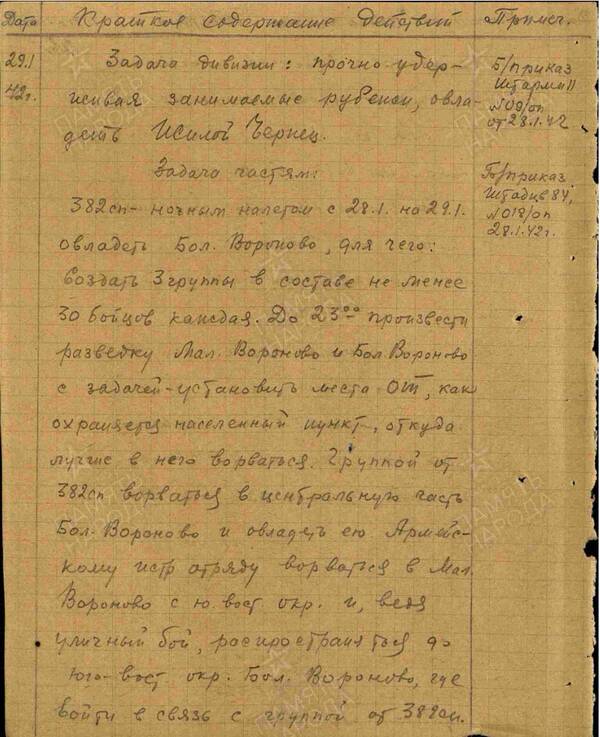 Дата Краткое содержание действий Примеч.
29.1 Задача дивизии: прочно удер-
42г. живая занимаемые рубежи, овла-
деть Жилой Чернец.
Задача частям:
382сп - ночным налетом с 28.1. на 29.1.
овладеть Бол. Вороново, для чего:
создать 3 группы в составе не менее
30 бойцов каждая. До 23⁰⁰ произвести
разведку Мал. Вороново и Бол. Вороново
с задачей - установить места ОТ, как
охраняется населенный пункт, откуда
лучше в него ворваться. Группой от
382сп ворваться в центральную часть
Бол. Вороново и овладеть ею Армейс-
кому истр отряду ворваться в Мал.
Вороново с ю. вост окр. и, ведя
уличный бой, распространяться до
юго-вост окр. Бол. Вороново, где
войти в связь с группой от 382сп.
Б/приказ
№09/оп
от 28.1.42
Б/приказ
№018/оп
28.1.42г.
ПАМЯТЬ
НАРОДА